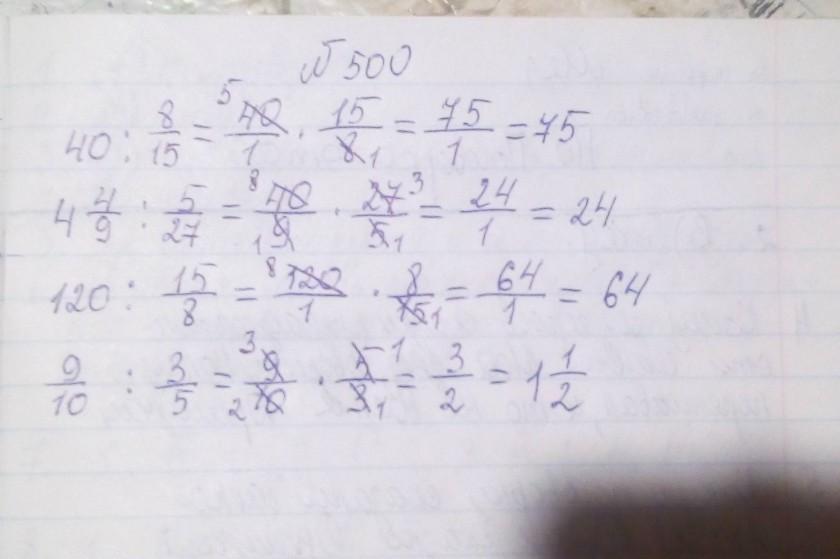 № 500
40 : 8/15 = 5 40/1 · 15/8 1 = 75/1 = 75
4 4/9 : 5/27 = 8 40/1 9 · 27 3/5 1 = 24/1 = 24
120 : 15/8 = 8 120/1 · 8/15 1 = 64/1 = 64
9/10 : 3/5 = 3 9/2 10 · 5 1/3 1 = 3/2 = 1 1/2